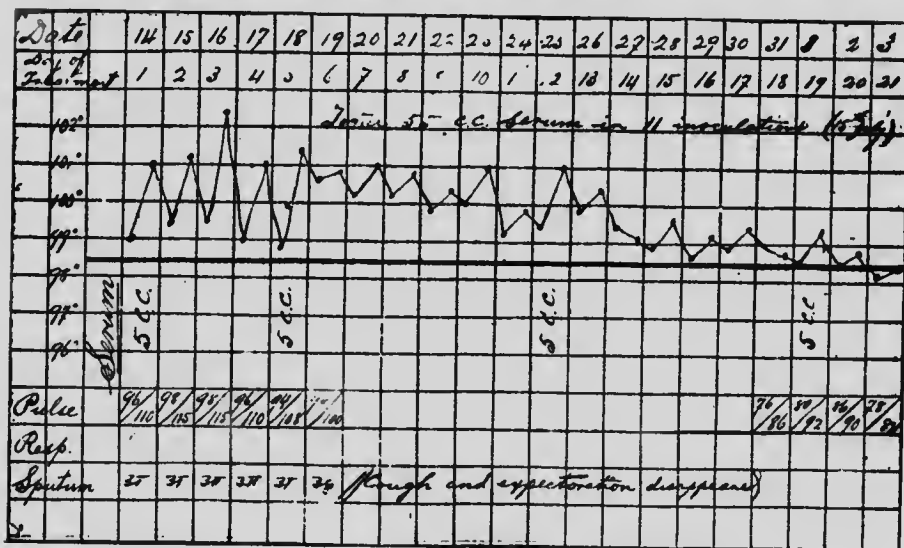 Date 14 15 16 17 18 19 20 21 22 23 24 25 26 27 28 29 30 31 1 2 3
Day of 
Treatment 1 2 3 4 5 6 7 8 10 1 2 13 14 15 16 17 18 19 20 21
102°
55 c.c. Serum in 11 inoculations
101°
100°
99°
98°
97°
96°
Serum 5 C.C. 5 C.C. 5 C.C. 5 C.C
Pulse 96/110 98/115 98/115 96/110 94/108 /100 76/86 80/92 86/90 78/
Resp.
Sputum (Cough and expectoration disappeared)